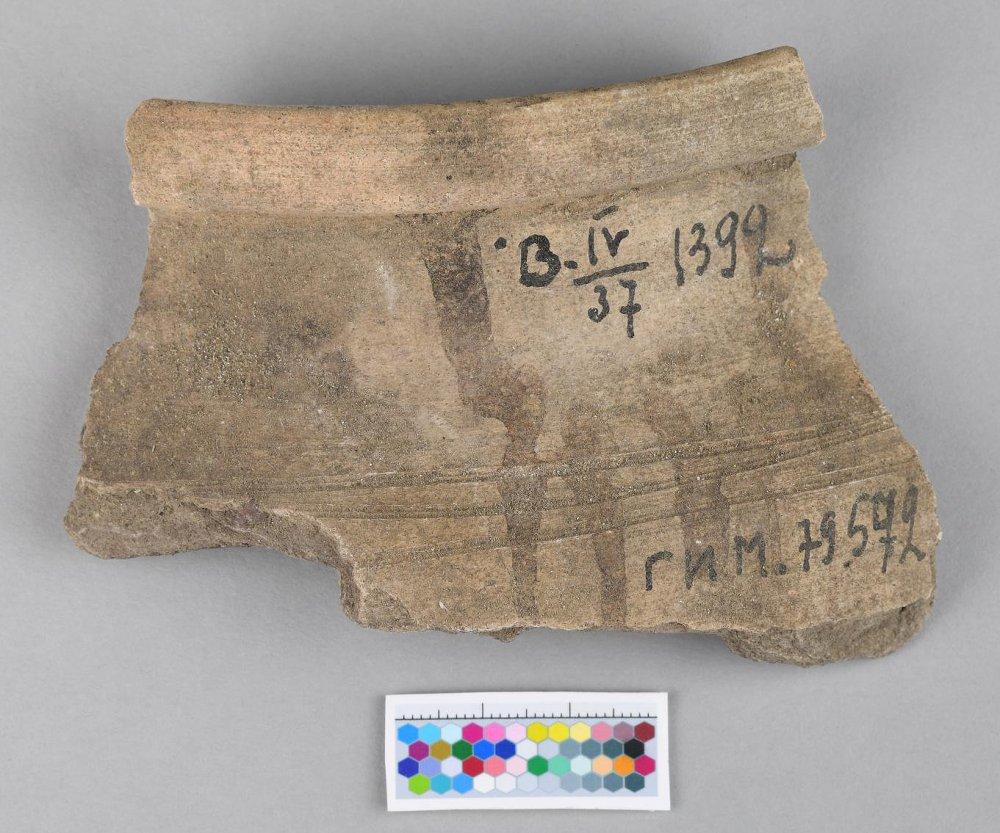 В. IV/37 1392
гим. 79.572